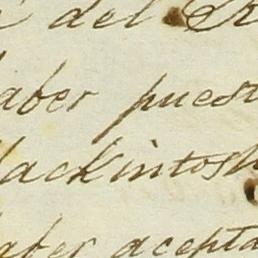 del
haber puest
Mackintosh
haber acepta